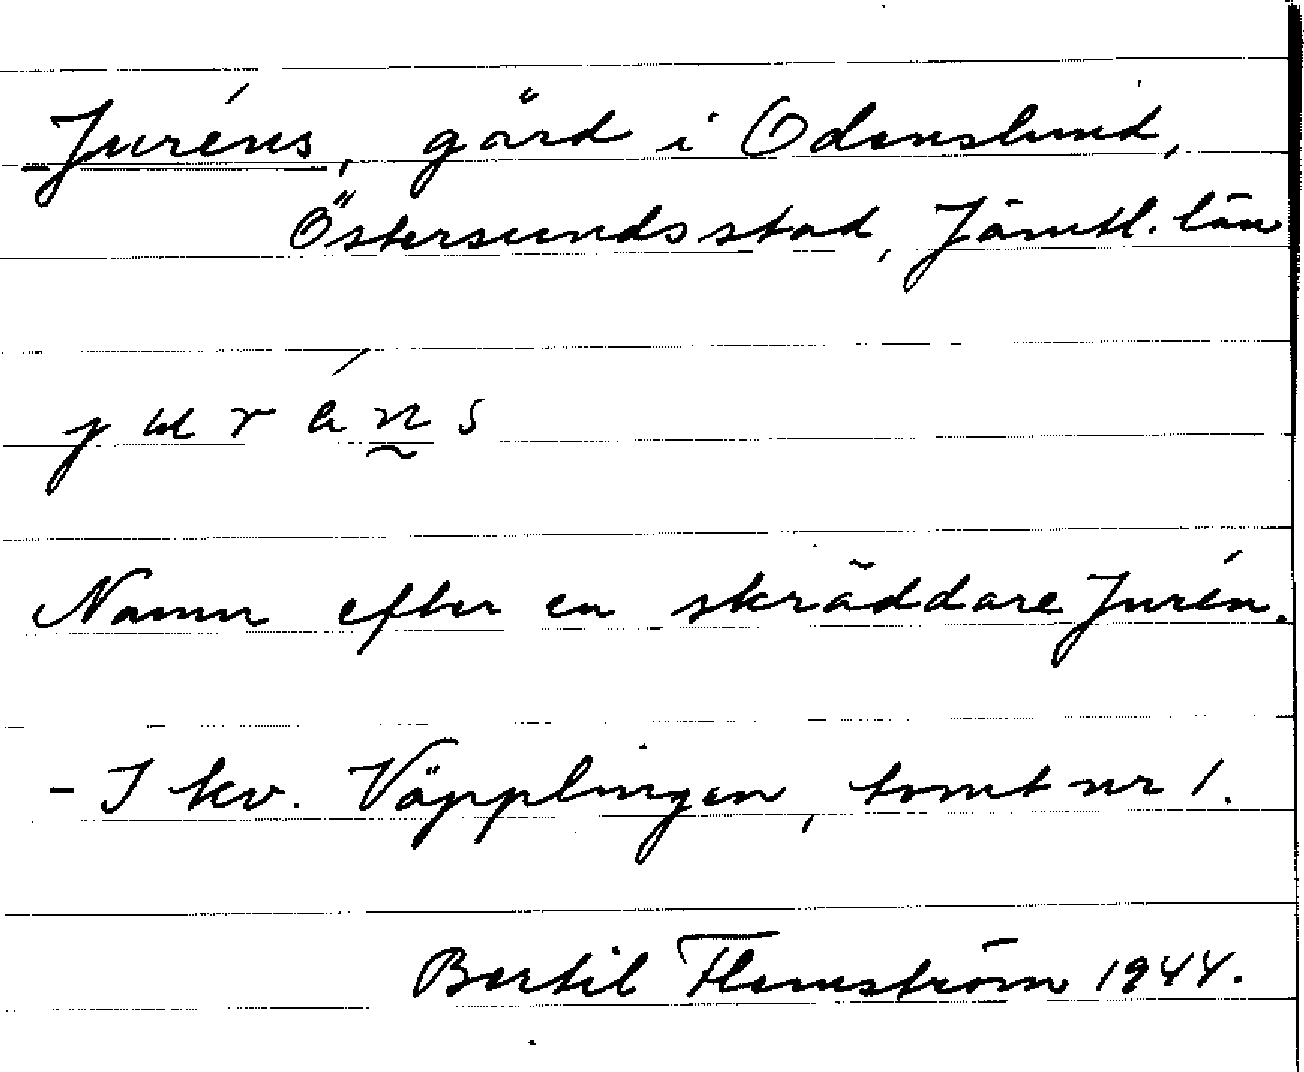 Juréns, gård i Odenslund,
Östersunds stad, Jämtl. län
j u r é n s
Namn efter en skräddare Jurén.
- I kv. Väpplingen, tomt nr 1.
Bertil Flemström 1944.